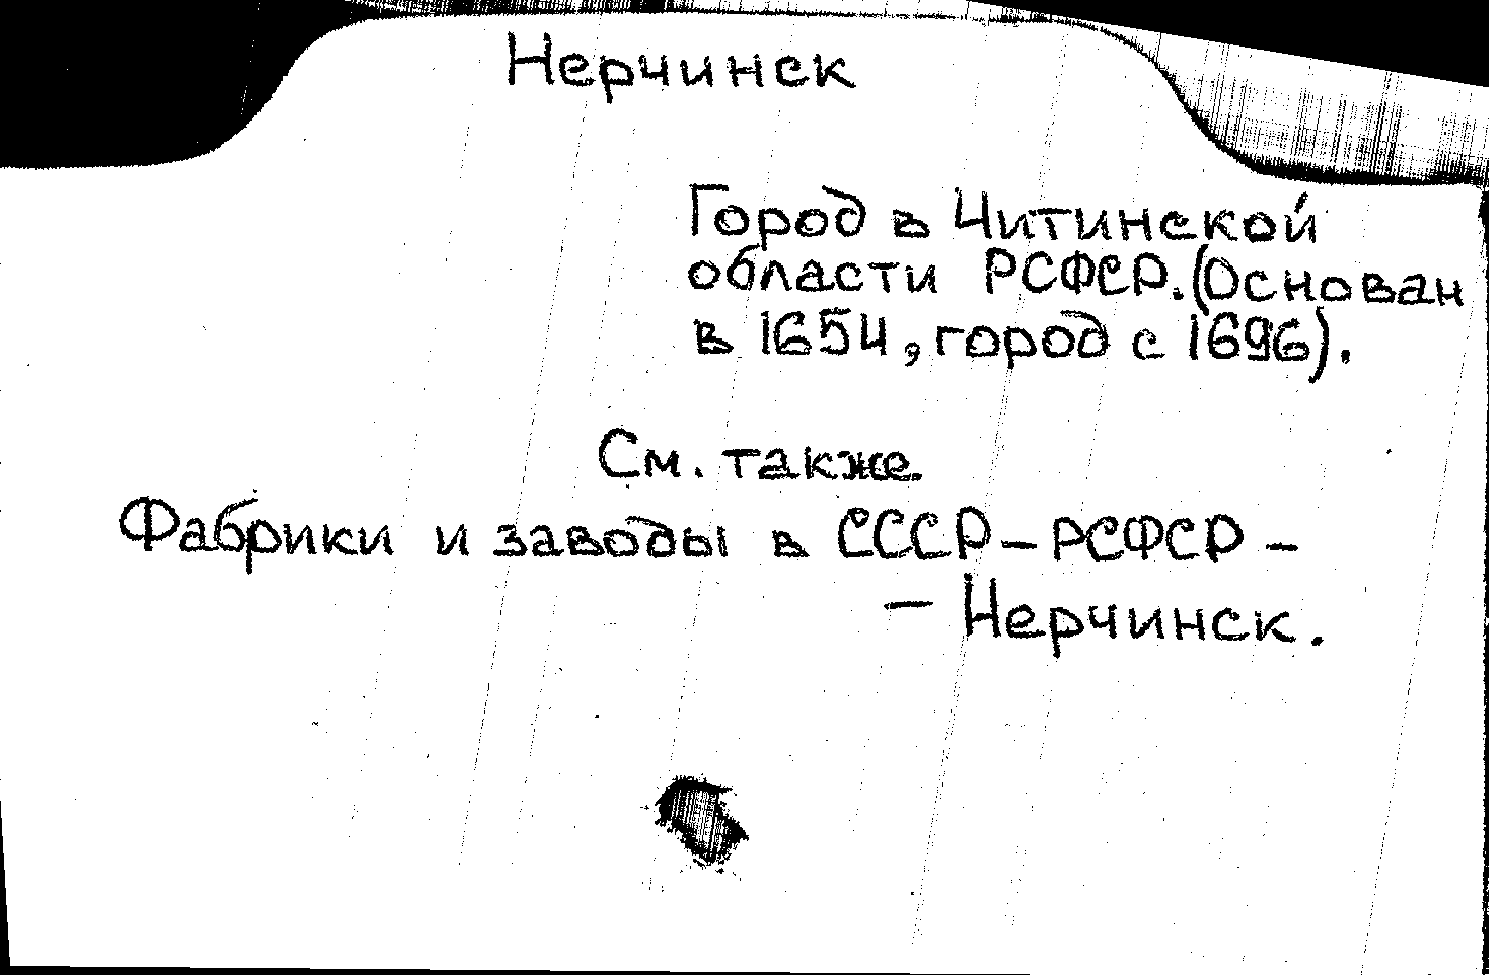 Нерчинск
Город в Читинской
области РСФСР. (Основан
в 1654, город с 1696).
См. также.
Фабрики и заводы в СССР – РСФСР –
– Нерчинск.